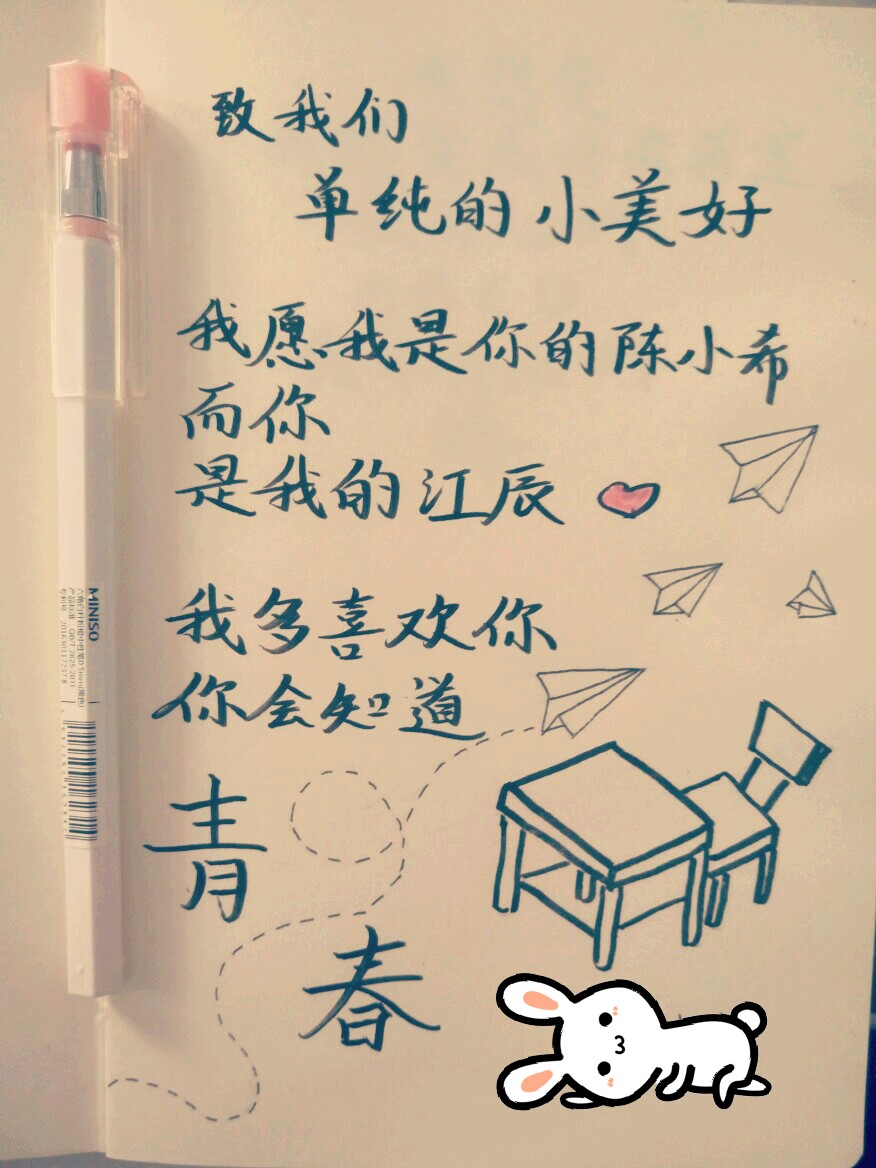 致我们
单纯的小美好
我愿我是你的陈小希
而你
是我的江辰
我多喜欢你
你会知道
青
春
MINISO